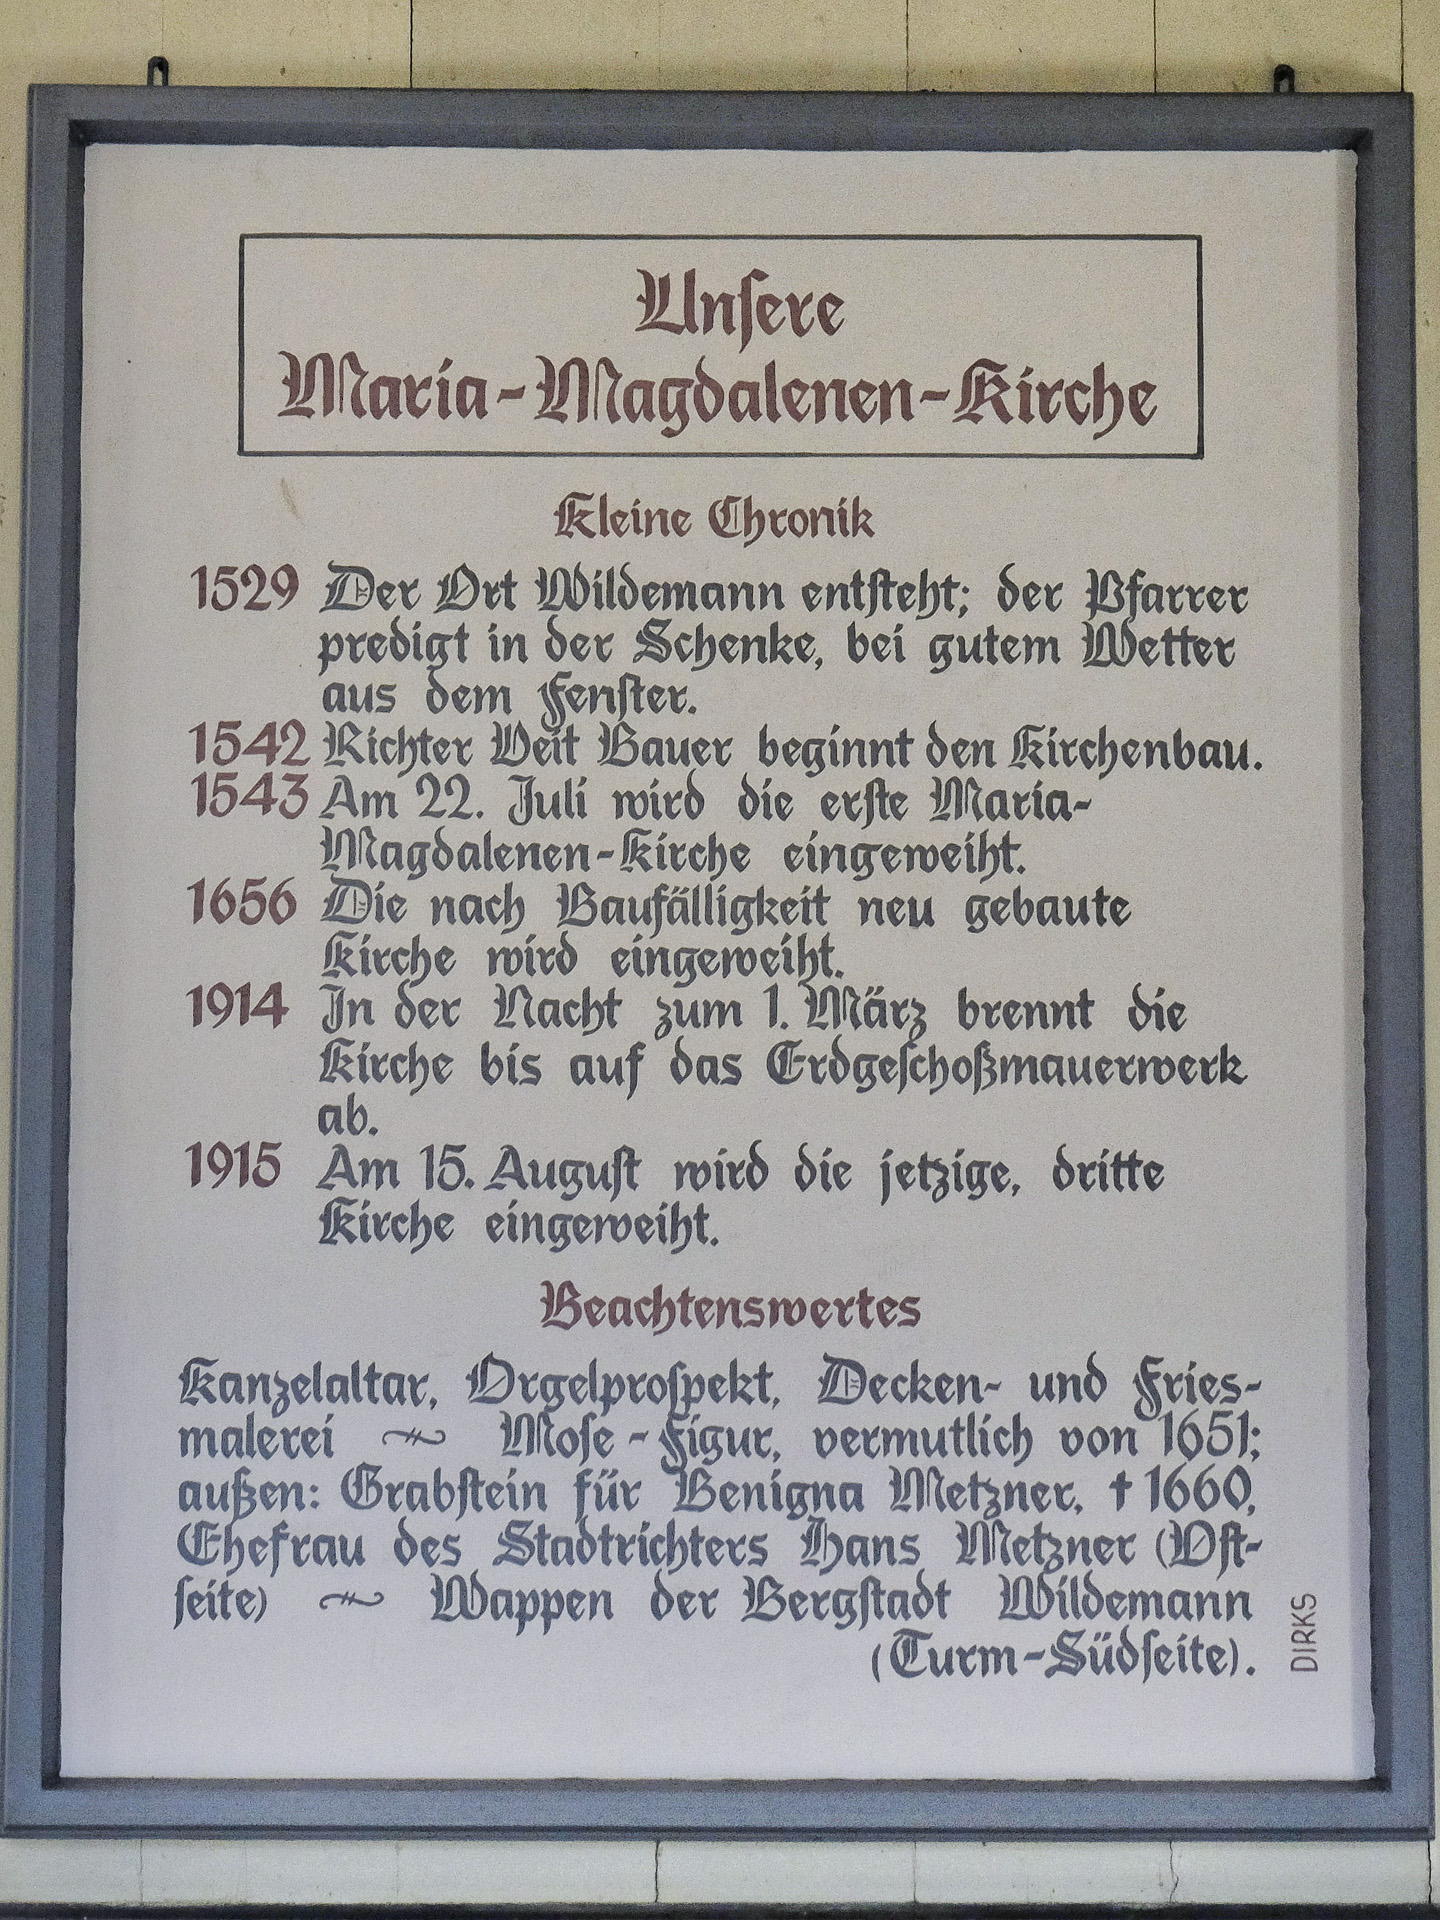 Unſere
Maria-Magdalenen-Kirche
Kleine Chronik
1529 Der Ort Wildemann entſteht; der Pfarrer
predigt in der Schenke, bei gutem Wetter
aus dem Fenſter.
1542 Richter Veit Bauer beginnt den Kirchenbau.
1543 Am 22. Juli wird die erſte Maria-
Magdalenen-Kirche eingeweiht.
1656 Die nach Baufälligkeit neu gebaute
Kirche wird eingeweiht.
1914 In der Nacht zum 1. März brennt die
Kirche bis auf das Erdgeſchoßmauerwerk
ab.
1915 Am 15. Auguſt wird die jetzige, dritte
Kirche eingeweiht.
Beachtenswertes
Kanzelaltar, Orgelproſpekt, Decken- und Fries-
malerei ~ Moſe-Figur, vermutlich von 1651;
außen: Grabſtein für Benigna Metzner, † 1660,
Ehefrau des Stadtrichters Hans Metzner (Oſt-
ſeite) ~ Wappen der Bergſtadt Wildemann
(Turm-Südſeite).
DIRKS